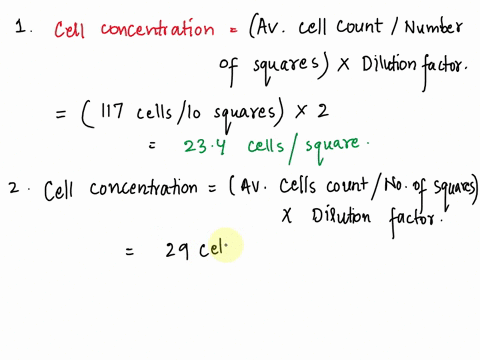 1. Cell concentration = (Av. cell count / Number
of squares) × Dilution factor.
= (117 cells/10 squares) × 2
= 23.4 cells/square.
2. Cell concentration = (Av. Cells count / No. of squares)
× Dilution factor.
= 29 Cel